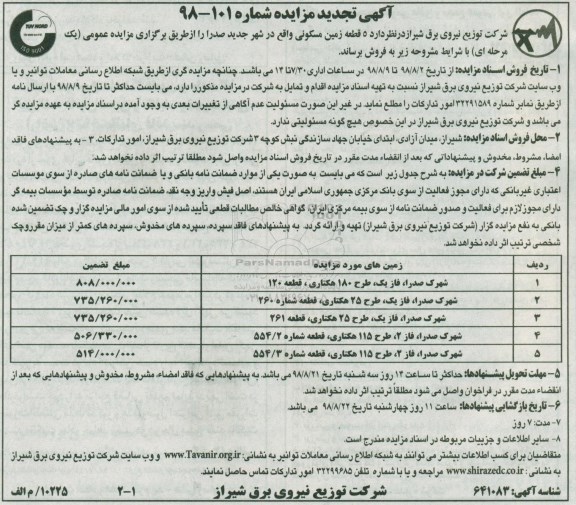 آگهی تجدید مزایده شماره ۱۰۱-۹۸
شرکت توزیع نیروی برق شیراز درنظردارد ۵ قطعه زمین مسکونی واقع در شهر جدید صدرا را ازطریق برگزاری مزایده عمومی (یک
مرحله ای) با شرایط مشروحه زیر به فروش برساند.
TUV NORD
ISO 9001
۱- تاریخ فروش اسناد مزایده: از تاریخ ۹۸/۸/۲ تا ۹۸/۸/۹ در ساعات اداری ۷/۳۰ تا ۱۴ می باشد. چنانچه مزایده گری ازطریق شبکه اطلاع رسانی معاملات توانیر و یا
وب سایت شرکت توزیع نیروی برق شیراز نسبت به تهیه اسناد مزایده اقدام و تمایل به شرکت در مزایده مذکور را دارد، می بایست حداکثر تا تاریخ ۹۸/۸/۹ با ارسال نامه
ازطریق نمابر شماره ۳۲۲۹۱۵۸۹ امور تدارکات را مطلع نماید در غیر این صورت مسئولیت عدم آگاهی از تغییرات بعدی به وجود آمده در اسناد مزایده به عهده مزایده گر
می باشد و شرکت توزیع نیروی برق شیراز در این خصوص هیچ گونه مسئولیتی ندارد.
۲- محل فروش اسناد مزایده: شیراز، میدان آزادی، ابتدای خیابان جهاد سازندگی نبش کوچه ۳ شرکت توزیع نیروی برق شیراز، امور تدارکات. ۳- به پیشنهادهای فاقد
امضا، مشروط، مخدوش و پیشنهاداتی که بعد از انقضاء مدت مقرر در تاریخ فروش اسناد مزایده واصل شود مطلقا ترتیب اثر داده نخواهد شد.
۴- مبلغ تضمین شرکت در مزایده: به شرح جدول زیر است که می بایست به صورت یکی از موارد ضمانت نامه بانکی و یا ضمانت نامه های صادره از سوی موسسات
اعتباری غیربانکی که دارای مجوز فعالیت از سوی بانک مرکزی جمهوری اسلامی ایران هستند، اصل فیش واریز وجه نقد، ضمانت نامه صادره توسط مؤسسات بیمه گر
دارای مجوز لازم برای فعالیت و صدور ضمانت نامه از سوی بیمه مرکزی ایران، گواهی خالص مطالبات قطعی تأیید شده از سوی امور مالی مزایده گزار و چک تضمین شده
بانکی به نفع مزایده گزار (شرکت توزیع نیروی برق شیراز) تهیه و ارائه گردد. به پیشنهادهای فاقد سپرده، سپرده های مخدوش، سپرده های کمتر از میزان مقرر و چک
شخصی ترتیب اثر داده نخواهد شد.
ردیف زمین های مورد مزایده مبلغ تضمین
۱ شهرک صدرا، فاز یک، طرح ۱۸۰ هکتاری، قطعه ۱۲۰ ۸۰۸/۰۰۰/۰۰۰
۲ شهرک صدرا، فاز یک، طرح ۲۵ هکتاری، قطعه شماره ۲۶۰ ۷۳۵/۲۶۰/۰۰۰
۳ شهرک صدرا، فاز یک، طرح ۲۵ هکتاری، قطعه ۲۶۱ ۷۳۵/۲۶۰/۰۰۰
۴ شهرک صدرا، فاز ۲، طرح ۱۱۵ هکتاری، قطعه شماره ۵۵۴/۲ ۵۰۶/۳۳۰/۰۰۰
۵ شهرک صدرا، فاز ۲، طرح ۱۱۵ هکتاری، قطعه شماره ۵۵۴/۳ ۵۱۴/۰۰۰/۰۰۰
۵- مهلت تحویل پیشنهادها: حداکثر تا ساعت ۱۴ روز سه شنبه تاریخ ۹۸/۸/۲۱ می باشد. به پیشنهادهایی که فاقد امضاء، مشروط، مخدوش و پیشنهادهایی که بعد از
انقضاء مدت مقرر در فراخوان واصل می شود مطلقاً ترتیب اثر داده نخواهد شد.
۶- تاریخ بازگشایی پیشنهادها: ساعت ۱۱ روز چهارشنبه تاریخ ۹۸/۸/۲۲ می باشد.
۷- مدت: ۷ روز
۸- سایر اطلاعات و جزییات مربوطه در اسناد مزایده مندرج است.
متقاضیان برای کسب اطلاعات بیشتر می توانند به شبکه اطلاع رسانی معاملات توانیر به نشانی: www.Tavanir.org.ir و وب سایت شرکت توزیع نیروی برق شیراز
به نشانی: www.shirazedc.co.ir مراجعه و یا با شماره تلفن ۳۲۲۹۹۶۸۵ امور تدارکات تماس حاصل نمایند.
شناسه آگهی: ۶۴۱۰۸۳ شرکت توزیع نیروی برق شیراز ۲-۱ ۱۰۲۲۵/م الف